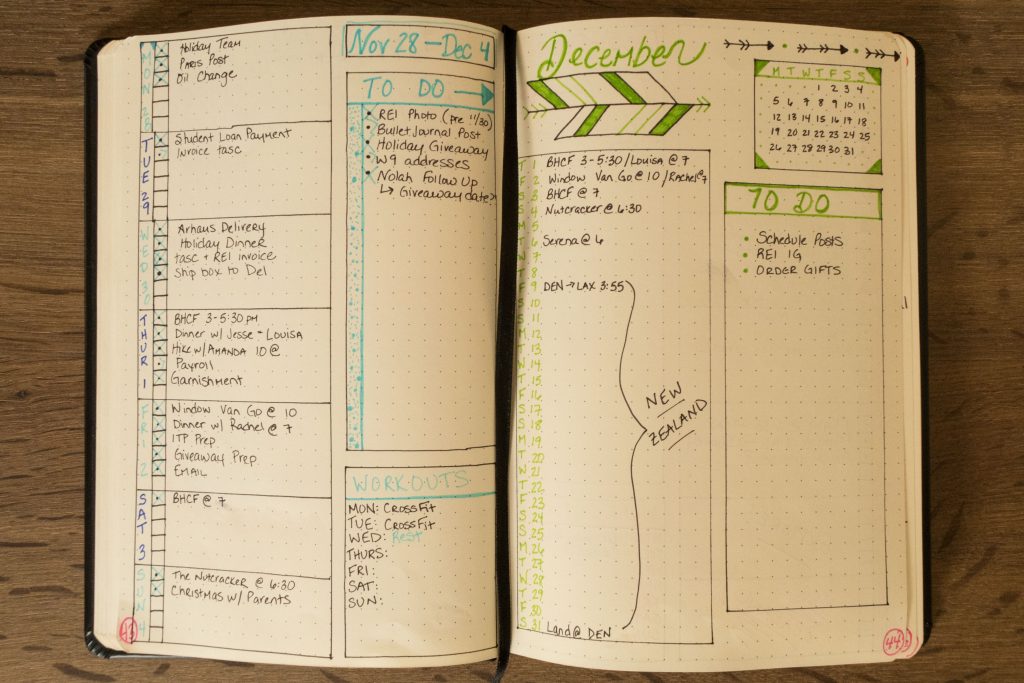 MON 28
Holiday Team
Paris Post
Oil Change
TUE 29
Student Loan Payment
Invoice tasc
WED 30
Arhaus Delivery
Holiday Dinner
tasc + REI invoice
Ship box to Del
THUR 1
BHCF 3-5:30 pm
Dinner w/ Jesse - Louisa
Hike w/ AMANDA 10 @
Payroll
Garnishment
FRI 2
Window Van Go @ 10
Dinner w/ Rachel @ 7
ITP Prep
Giveaway Prep
EMAIL
SAT 3
BHCF @ 7
SUN 4
The Nutcracker @ 6:30
Christmas w/ Parents
43
Nov 28 - Dec 4
TO DO →
REI Photo (pre 11/30)
• Bullet Journal Post
• Holiday Giveaway
• W9 addresses
• Nolah Follow Up
↳ Giveaway date
WORKOUTS
MON: CrossFit
TUE: CrossFit
WED: Rest
THURS:
FRI:
SAT:
SUN:
December
T 1 BHCF 3-5:30/Louisa @ 7
F 2 Window Van Go @ 10 /Rachel@7
S 3 BHCF @ 7
S 4 Nutcracker @ 6:30
M 5
T 6 Serena @ 6
W 7
T 8
F 9 DEN → LAX 3:55
S 10
S 11
M 12
T 13
W 14
T 15
F 16
S 17
S 18
M 19
T 20
W 21
T 22
F 23
S 24
S 25
M 26
T 27
W 28
T 29
F 30
S 31 Land @ DEN
NEW
ZEALAND
M T W T F S S
1 2 3 4
5 6 7 8 9 10 11
12 13 14 15 16 17 18
19 20 21 22 23 24 25
26 27 28 29 30 31
TO DO
• Schedule Posts
• REI IG
• ORDER GIFTS
44